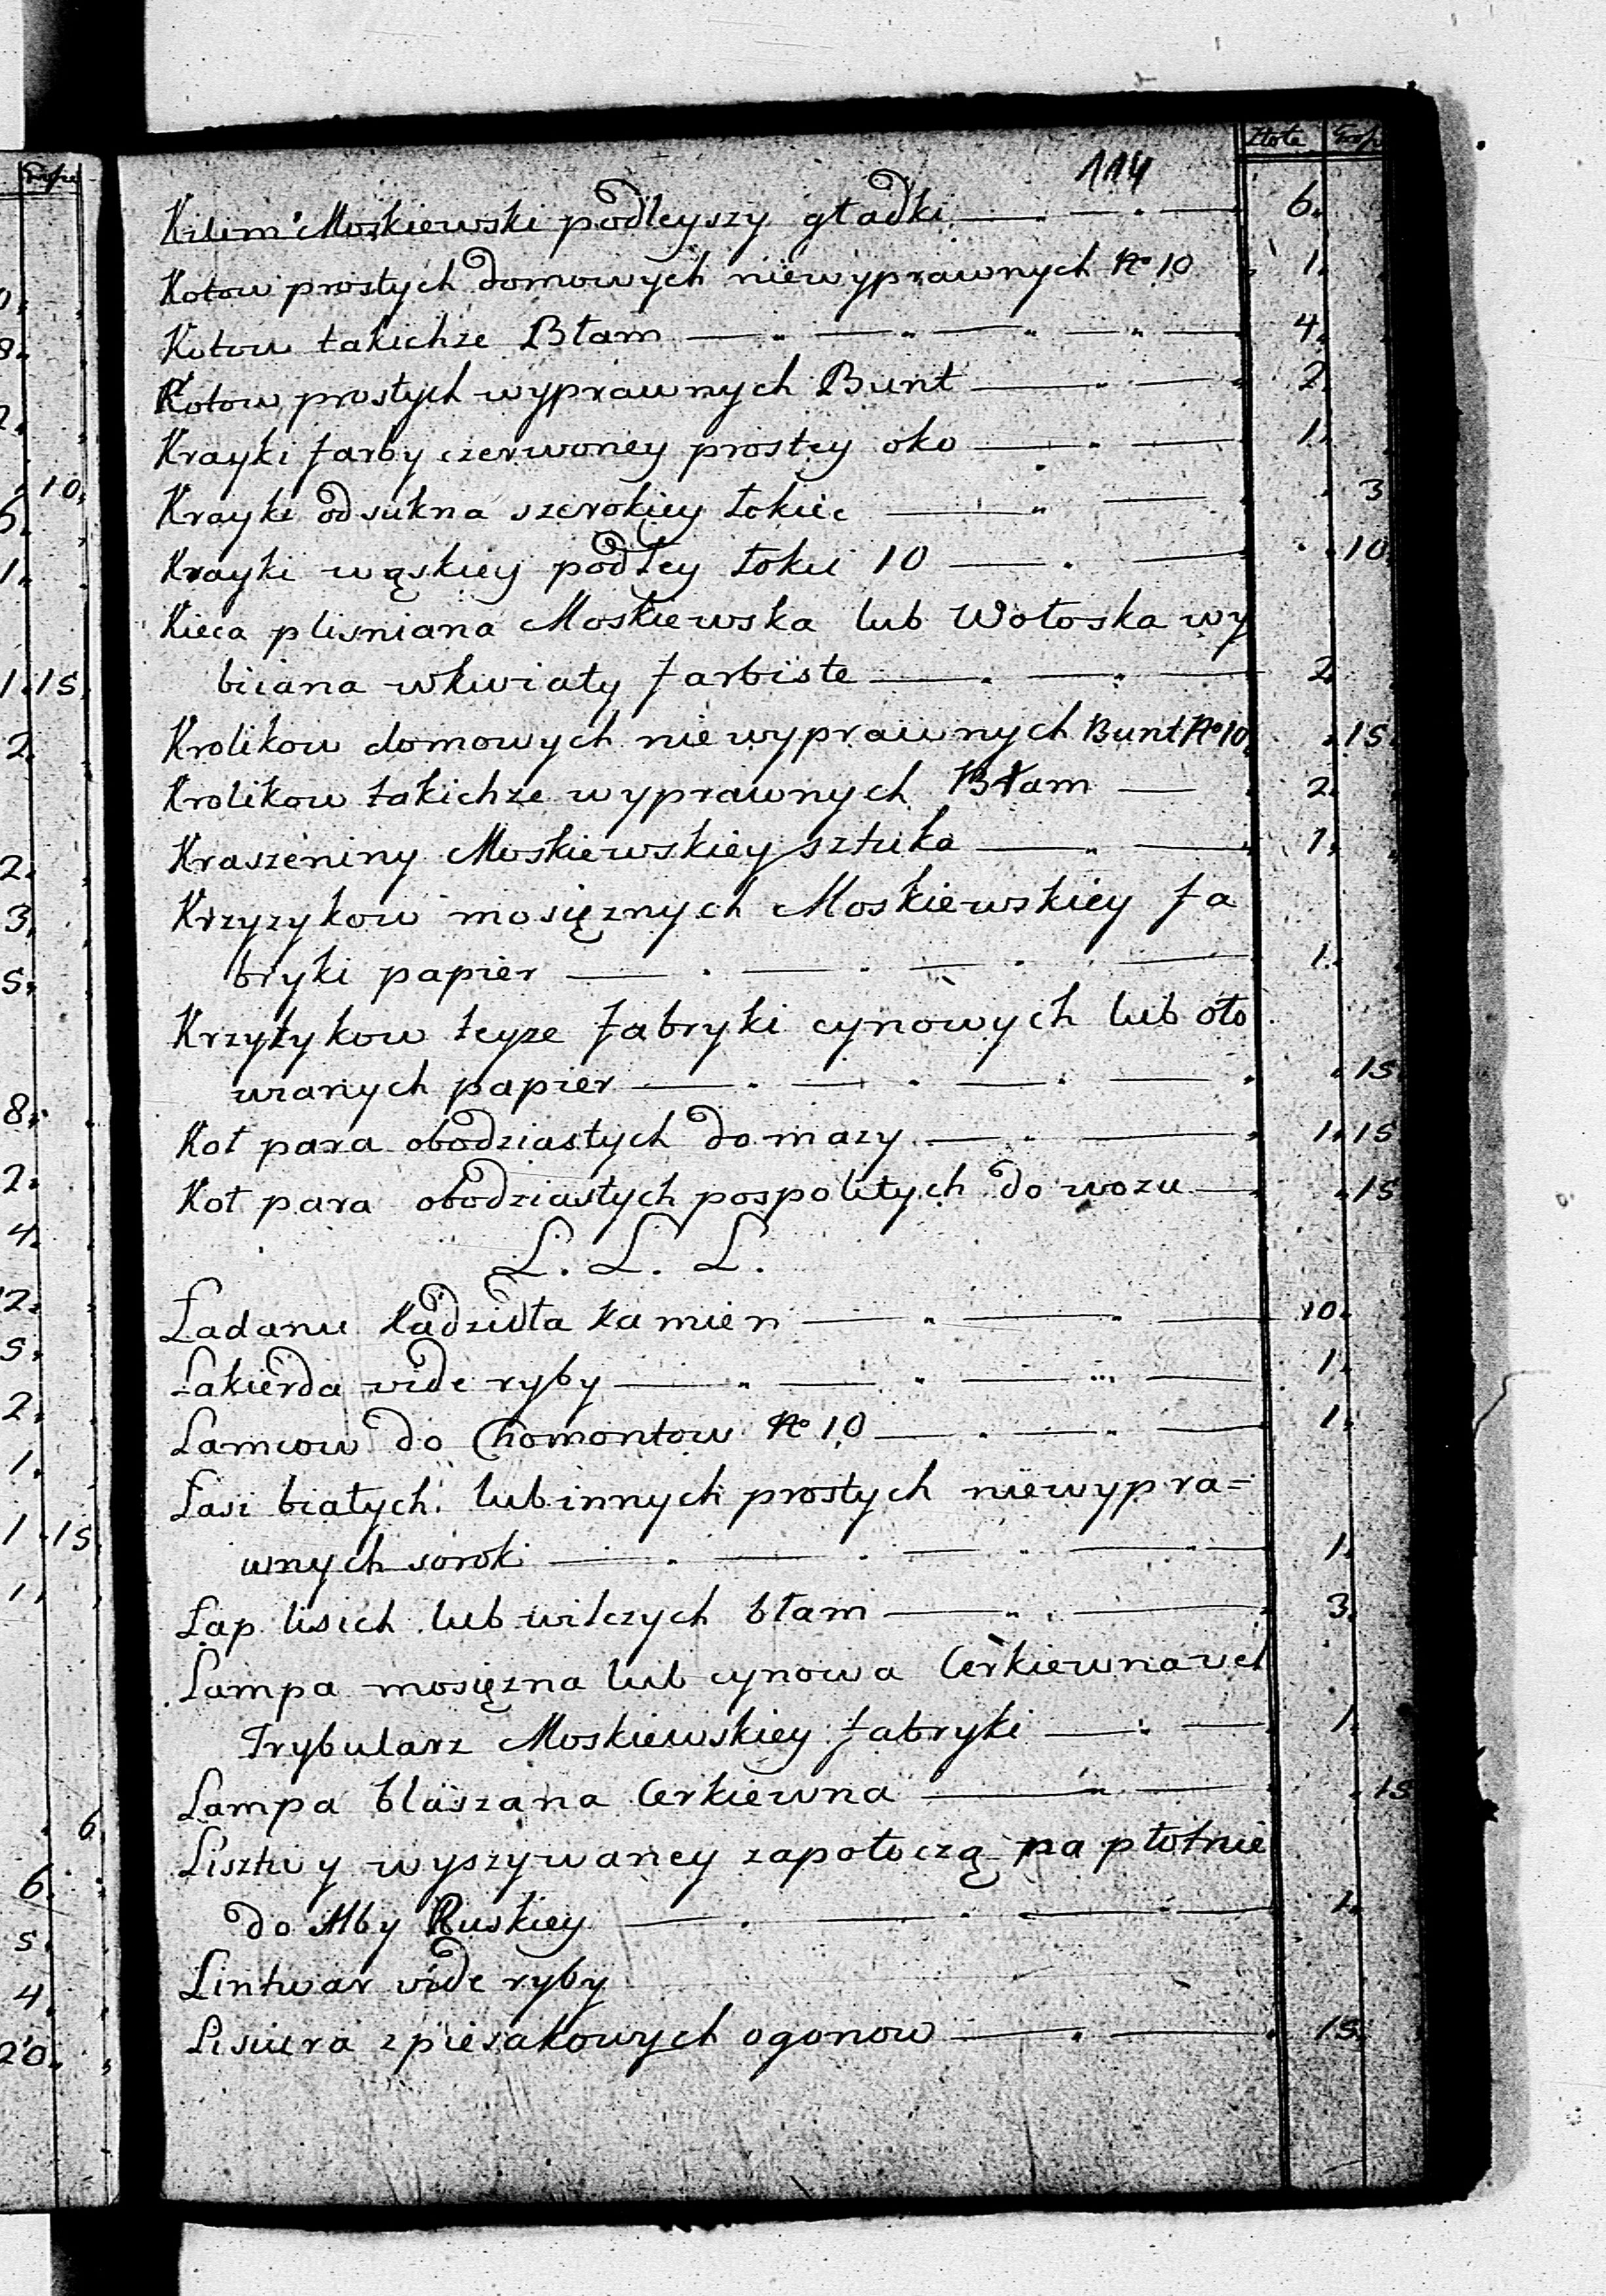 Złote Grosze
114
Kilim Moskiewski podleyszy gładki 6.
Kotow prostych domowych niewyprawnych No 10 1.
Kotow takichże Błam 4.
Kotow prostych wyprawnych Bunt 2.
Krayki farby czerwoney prostey oko 1.
Krayki od sukna szerokiey łokieć 3
Krayki wąskiey podłey łokci 10 10.
Kieca plisniana Moskiewska lub Wołoska wy
biiana w kwiaty farbiste 2.
Krolikow domowych niewyprawnych Bunt No 10. 15.
Krolikow takichże wyprawnych Błam 2.
Kraszeniny Moskiewskiey sztuka 1.
Krzyzykow mosięznych Moskiewskiey fa
bryki papier 1.
Krzyzykow teyze fabryki cynowych lub oło
wianych papier 15
Koł para obodziastych do mazy 1. 15
Koł para obodziastych pospolitych do wozu 15
L. L. L.
Ladanu Kadzidła Kamien 10.
Lakierda vide ryby 1.
Lamcow do Chomontow No 10 1.
Łasi białych lub innych prostych niewypra=
wnych soroki 1.
Łap lisich lub wilczych błam 3.
Lampa mosięzna lub cynowa Cerkiewna vel
Trybularz Moskiewskiey fabryki 1.
Lampa blaszana Cerkiewna 15
Lisztwy wyszywaney zapołoczą na płotnie
do Alby Ruskiey 1.
Lintwar vide ryby
Lisiura z piesakowych ogonow 15.